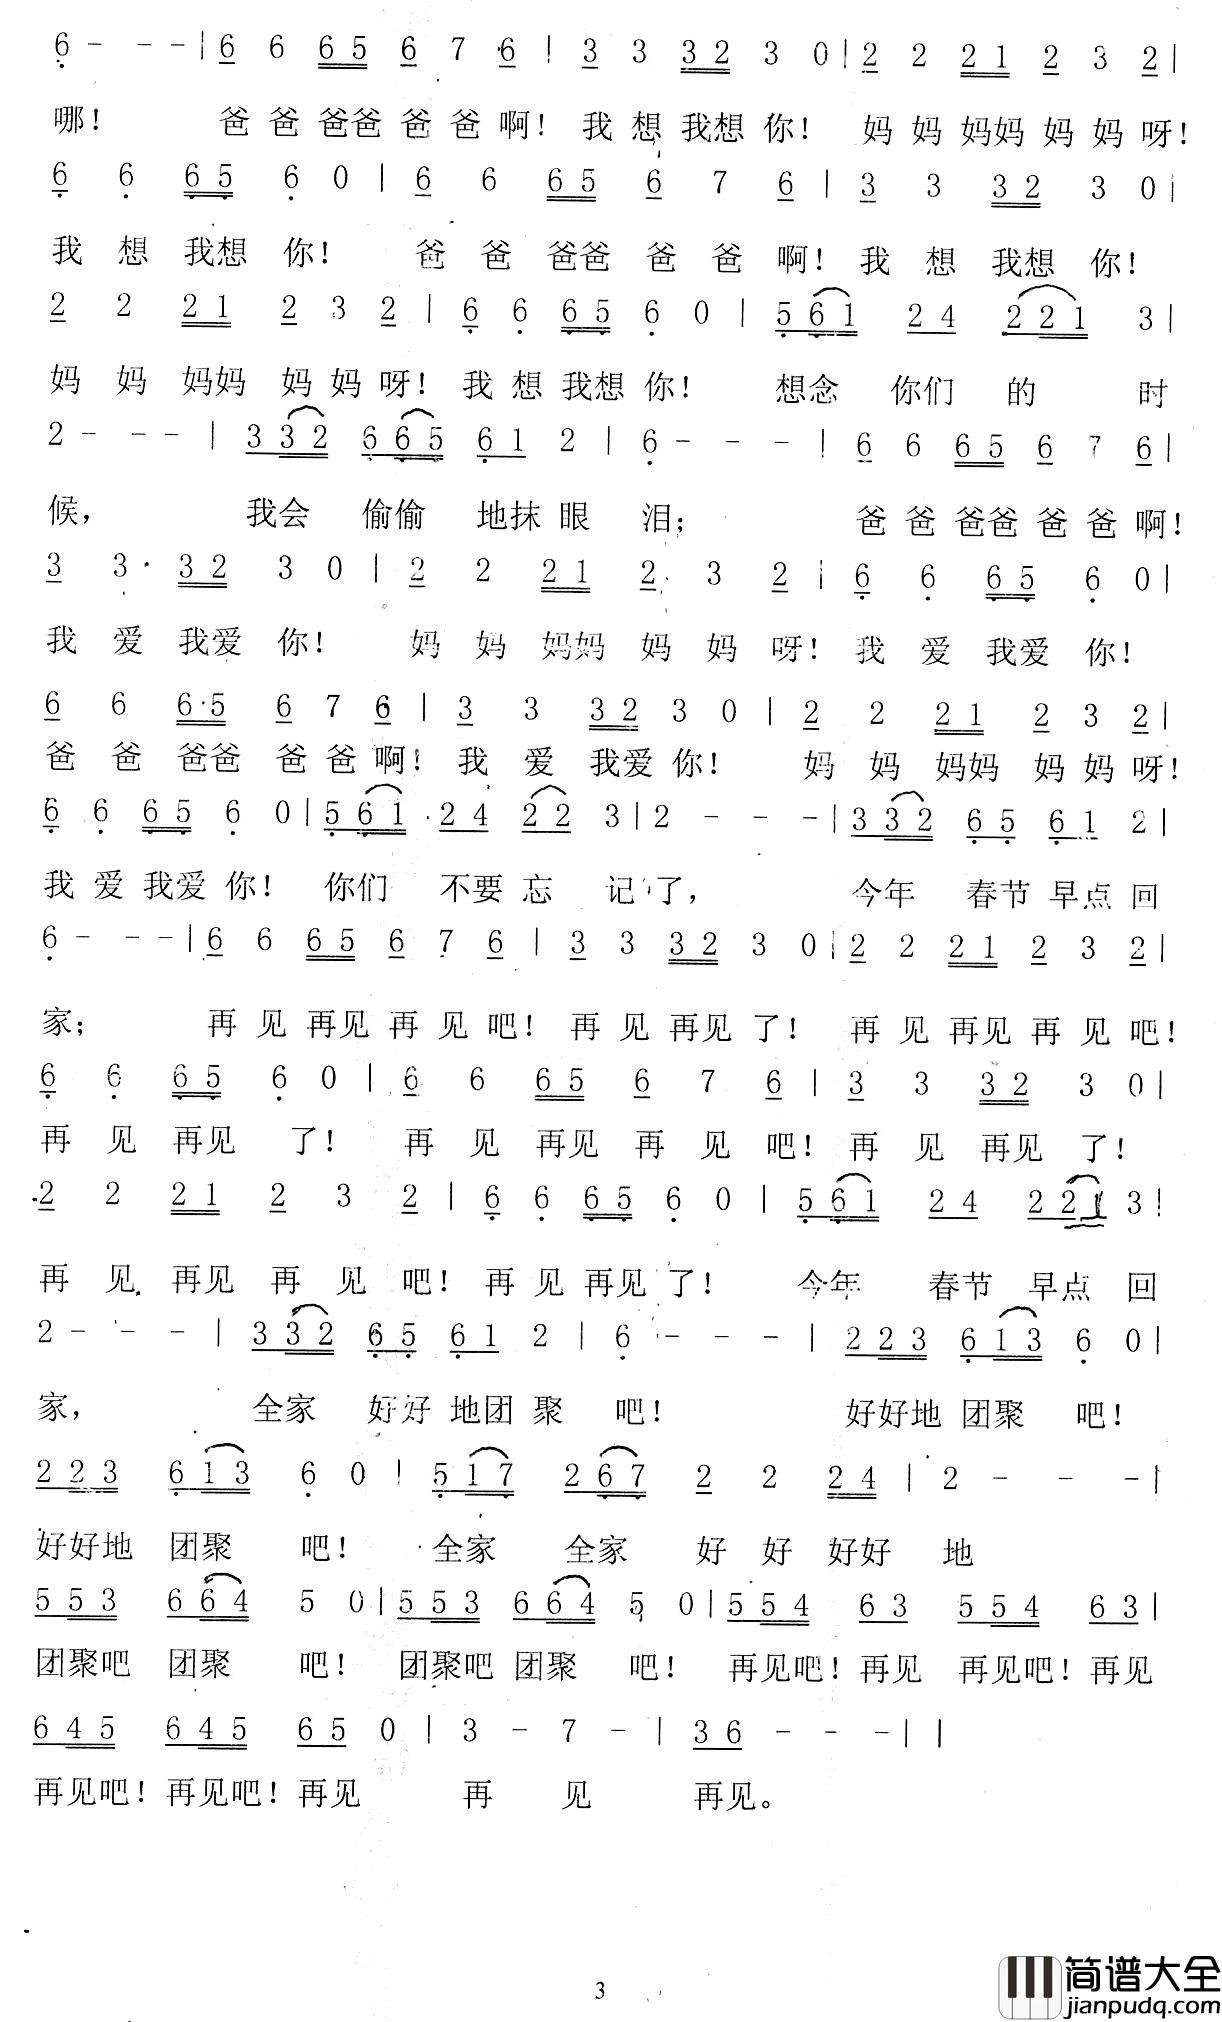 6 - - - | 6 6 6 5 6 7 6 | 3 3 3 2 3 0 | 2 2 2 1 2 3 2 |
哪！ 爸 爸 爸爸 爸 爸 啊！ 我 想 我想 你！ 妈 妈 妈妈 妈 妈 呀！
6 6 6 5 6 0 | 6 6 6 5 6 7 6 | 3 3 3 2 3 0 |
我 想 我想 你！ 爸 爸 爸爸 爸 爸 啊！ 我 想 我想 你！
2 2 2 1 2 3 2 | 6 6 6 5 6 0 | 5 6 1 2 4 2 2 1 3 |
妈 妈 妈妈 妈 妈 呀！ 我 想 我想 你！ 想念 你们 的 时
2 - - - | 3 3 2 6 6 5 6 1 2 | 6 - - - | 6 6 6 5 6 7 6 |
候， 我会 偷偷 地抹 眼 泪； 爸 爸 爸爸 爸 爸 啊！
3 3 3 2 3 0 | 2 2 2 1 2 3 2 | 6 6 6 5 6 0 |
我 爱 我爱 你！ 妈 妈 妈妈 妈 妈 呀！ 我 爱 我爱 你！
6 6 6 5 6 7 6 | 3 3 3 2 3 0 | 2 2 2 1 2 3 2 |
爸 爸 爸爸 爸 爸 啊！ 我 爱 我爱 你！ 妈 妈 妈妈 妈 妈 呀！
6 6 6 5 6 0 | 5 6 1 2 4 2 2 3 | 2 - - - | 3 3 2 6 5 6 1 2 |
我 爱 我爱 你！ 你们 不要 忘 记 了， 今年 春节 早点 回
6 - - - | 6 6 6 5 6 7 6 | 3 3 3 2 3 0 | 2 2 2 1 2 3 2 |
家； 再 见 再见 再 见 吧！ 再 见 再见 了！ 再 见 再见 再 见 吧！
6 6 6 5 6 0 | 6 6 6 5 6 7 6 | 3 3 3 2 3 0 |
再 见 再见 了！ 再 见 再见 再 见 吧！ 再 见 再见 了！
2 2 2 1 2 3 2 | 6 6 6 5 6 0 | 5 6 1 2 4 2 2 1 3 |
再 见 再见 再 见 吧！ 再 见 再见 了！ 今年 春节 早点 回
2 - - - | 3 3 2 6 5 6 1 2 | 6 - - - | 2 2 3 6 1 3 6 0 |
家， 全家 好好 地团 聚 吧！ 好好地 团聚 吧！
2 2 3 6 1 3 6 0 | 5 1 7 2 6 7 2 2 2 4 | 2 - - - |
好好地 团聚 吧！ 全家 全家 好 好 好好 地
5 5 3 6 6 4 5 0 | 5 5 3 6 6 4 5 0 | 5 5 4 6 3 5 5 4 6 3 |
团聚吧 团聚 吧！ 团聚吧 团聚 吧！ 再见吧！再见 再见吧！再见
6 4 5 6 4 5 6 5 0 | 3 - 7 - | 3 6 - - - | |
再见吧！再见吧！再见 再 见 再见。
3
简谱大全
jianpudq.com